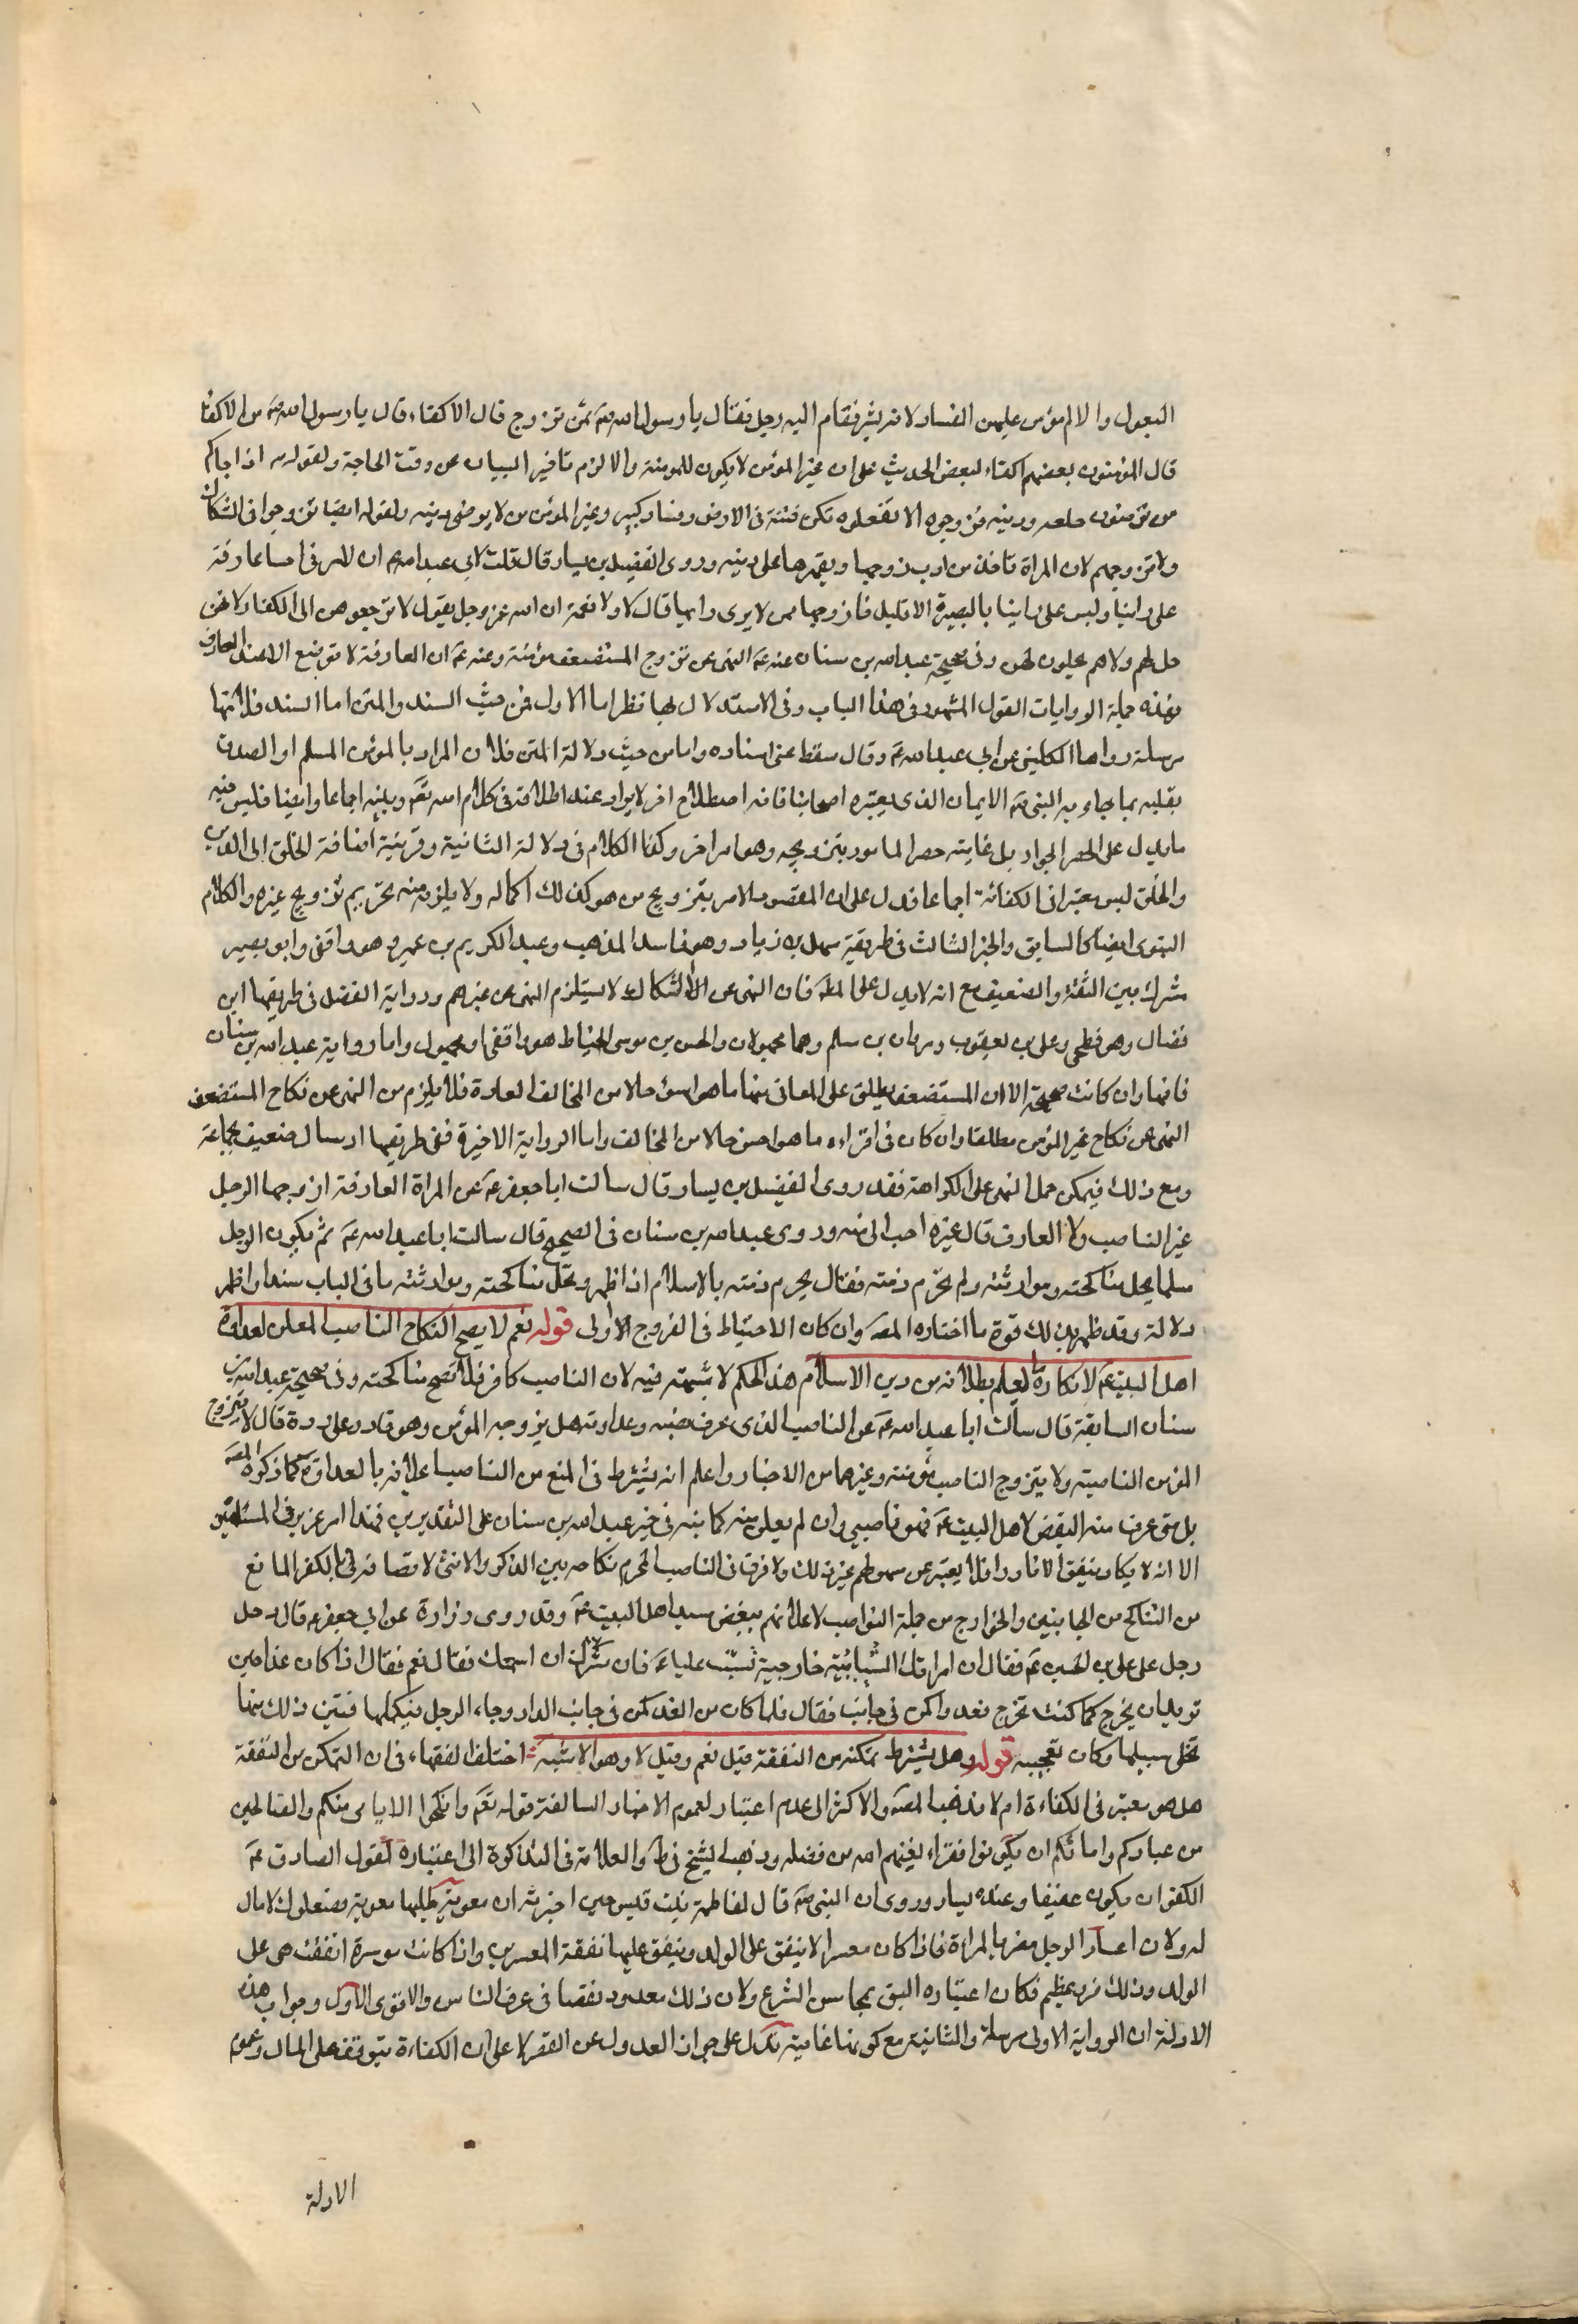 البعول والا لم يؤمن عليهن الفساد لانهن بشر فقام اليه رجل فقال يا رسول الله صه ممن نزوج قال الاكفاء قال يا رسول الله صه من الاكفاء
قال المؤمنون بعضهم اكفاء لبعض الحديث دل على ان غير المؤمن لا يكون للمؤمنة والا لزم تاخير البيان عن وقت الحاجة ولقوله اذا جاكم
من ترضون خلقه ودينه فزوجوه الا تفعلوه تكن فتنة فى الارض وفساد كبير وغير المؤمن من لا يرضى دينه ولقوله ايضا تزوجوا فى الشكاك
ولا تزوجهم لان المراة تاخذ من ادب زوجها ويقهرها على دينه وروى الفضيل بن يسار قال قلت لابى عبد الله ان لامراتى اختا عارفة
على راينا وليس على راينا بالبصرة الا قليل فازوجها ممن لا يرى رايها قال لا ولا نعمة ان الله عز وجل يقول لا ترجعوهن الى الكفار لا هن
حل لهم ولا هم يحلون لهن وفى صحيحة عبد الله بن سنان عنه عم النهى عن تزوج المستضعف مؤمنة وعنه عم ان العارفة لا توضع الا عند العارف
فهذه جملة الروايات القول المشهور فى هذا الباب وفى الاستدلال بها نظر اما الاول فمن حيث السند والمتن اما السند فلانها
مرسلة رواها الكلينى عن ابى عبد الله عم وقال سقط عنى اسناده واما من حيث دلالة المتن فلان المراد بالمؤمن المسلم او المصدق
بقلبه بما جاء به النبى صه الايمان الذى يعتبره اصحابنا فانه اصطلاح اخر لا يراد عند اطلاقه فى كلام الله تعم ونبيه اجماعا وايضا فليس فيه
ما يدل على الحصر الجواد بل غايته حصر المامور بتزويجه وهو امر اخر وكذا الكلام فى دلالة الثانية وقرينة اضافة الخلق الى الدين
والخلق ليس معتبرا فى الكفائة اجماعا فدل على ان المقصود الامر بتزويج من هو كذلك اكماله ولا يلزم منه تحريم تزويج غيره والكلام
النبوى ايضا كالسابق والخبر الثالث فى طريقة سهل بن زياد وهو فاسد المذهب وعبد الكريم بن عمرو وهو واقفى وابو بصير
مشترك بين الثقة والضعيف مع انه لا يدل على المط فان النهى عن الشكاك لا يستلزم النهى عن غيرهم ورواية الفضل فى طريقها ابن
فضال وهو فطحى وعلى بن يعقوب ومروان بن مسلم وهما مجهولان والحسن بن موسى الحناط هو واقفى او مجهول واما رواية عبد الله بن سنان
فانها وان كانت صحيحة الا ان المستضعف يطلق على المعانى منها ما هو اسؤ حالا من المخالف العارف فلا يلزم من النهى عن نكاح المستضعف
النهى عن نكاح غير المؤمن مطلقا وان كان فى افراده ما هو احسن حالا من المخالف واما الرواية الاخيرة ففى طريقها ارسال وضعيف بجماعة
ومع ذلك فيمكن حمل النهى على الكراهة فقد روى الفضيل بن يسار قال سالت ابا جعفر عم عن المراة العارفة ازوجها الرجل
غير الناصب ولا العارف قال غيره احب الى منه وروى عبد الله بن سنان فى الصحيح قال سالت ابا عبد الله عم بم يكون الرجل
مسلما يحل مناكحته وموارثته وبم يحرم دمه فقال يحرم دمه بالاسلام اذا ظهر وتحل مناكحته وموارثته وهو ما فى الباب سندا واظهر
دلالة وقد ظهر بذلك قوة ما اختاره المصه وان كان الاحتياط فى الفروج الاولى قوله نعم لا يصح النكاح الناصب المعلن لعداوة
اهل البيت عم لانكاره ما يعلم بطلانه من دين الاسلام هذا الحكم لا شبهة فيه لان الناصب كافر فلا تصح مناكحته وفى صحيحة عبد الله بن
سنان السابقة قال سالت ابا عبد الله عم عن الناصب الذى عرف نصبه وعداوته هل يزوجه المؤمن وهو قادر على رده قال لا يتزوج
المؤمن الناصبة ولا يتزوج الناصب مؤمنة وغيرهما من الاخبار واعلم انه يشترط فى المنع من الناصب اعلانه بالعداوة كما ذكره المصه
بل متى عرف منه البغض لاهل البيت عم فهو ناصبى وان لم يعلن منه كما نبه فى خبر عبد الله بن سنان على التقديرين فهذا امر عزيز فى المسلمين
الا انه لا يكاد يتفق الا نادرا فلا يعتبر عن سموطهم غير ذلك ولا فرق فى الناصب المحرم نكاحه بين الذكر والانثى لاتصافهما بالكفر المانع
من التناكح من الجانبين والخوارج من جملة النواصب لاعلانهم ببغض سيد اهل البيت عم وقد روى زرارة عن ابى جعفر عم قال دخل
رجل على على بن الحسين عم فقال ان امراتك الشيبانية خارجية تشتم عليا عم فان سرك ان اسمعك فقال نعم فقال اذا كان غدا حين
تريد ان تخرج كما كنت تخرج فعد واكمن فى جانب فقال فلما كان من الغد كمن فى جانب الدار وجاء الرجل فيكلمها فتبين ذلك منها
فخلى سبيلها وكان تعجبه قوله وهل يشترط تمكنه من النفقة قيل نعم وقيل لا وهو الاشبه اختلف الفقهاء فى ان التمكن من النفقة
هل هو معتبر فى الكفاءة ام لا فذهب المصه والاكثر الى عدم اعتبار لعموم الاخبار السالفة قوله تعم وانكحوا الايامى منكم والصالحين
من عبادكم وامائكم ان يكونوا فقراء يغنيهم الله من فضله وذهب الشيخ فى ط والعلامة فى التذكرة الى اعتباره لقول الصادق عم
الكفو ان يكون عفيفا وعنده يسار وروى ان النبى صه قال لفاطمة بنت قيس حين اخبرته ان معوية خطبها معوية صعلوك لا مال
له ولان اعسار الرجل مضر بالمراة فاذا كان معسرا لا ينفق على الولد وينفق عليها نفقة المعسرين واذا كانت موسرة انفقت هى على
الولد وذلك ضرر عظيم فكان اعتباره اليق بمحاسن الشرع ولان ذلك معدود نقصا فى عرف الناس والاقوى الاول وجواب هذه
الادلة ان الرواية الاولى مرسلة والثانية مع كونها عامية تدل على جواز العدول عن الفقر لا على ان الكفاءة تتوقف على المال وعموم
الادلة